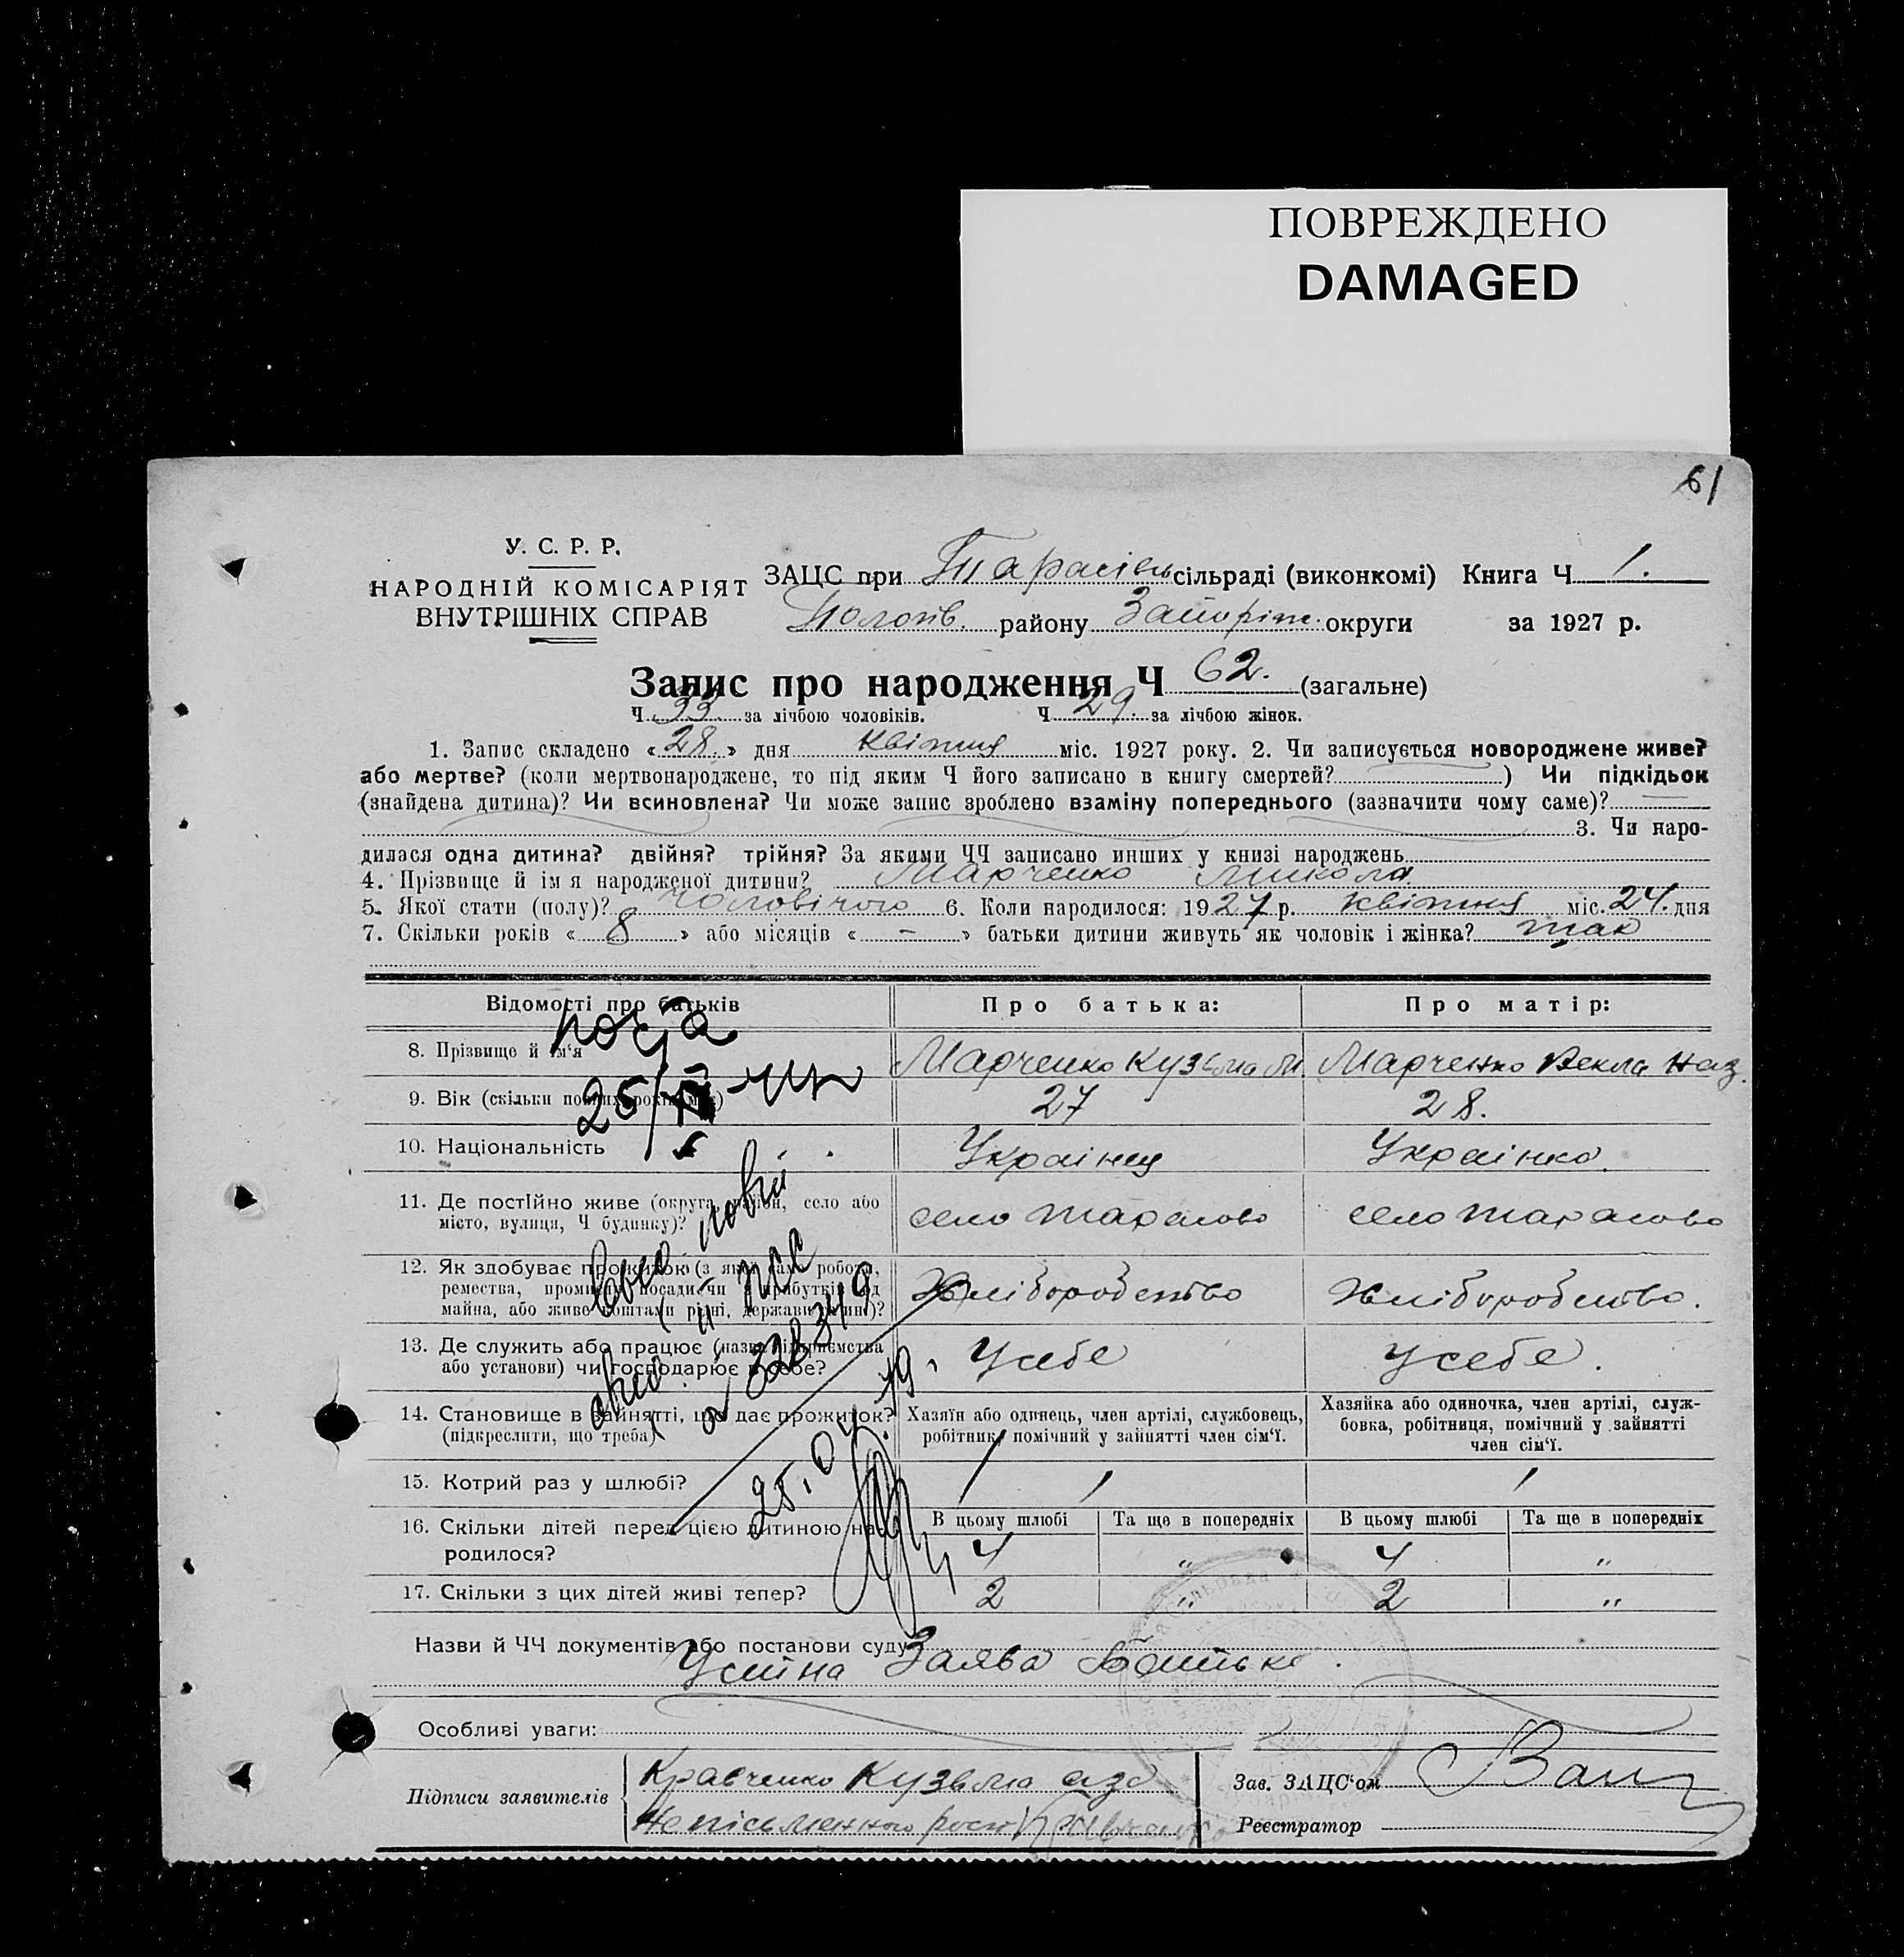 ПОВРЕЖДЕНО
DAMAGED
61
У. С. Р. Р.
НАРОДНІЙ КОМІСАРІЯТ
ВНУТРІШНІХ СПРАВ
ЗАЦС при Тарасівсь сільраді (виконкомі) Книга Ч 1.
Пологів. району Запоріж. округи за 1927 р.
Запис про народження Ч 62. (загальне)
Ч 33 за лічбою чоловіків. Ч 29. за лічбою жінок.
1. Запис складено « 28. » дня квітня міс. 1927 року. 2. Чи записується новороджене живе?
або мертве? (коли мертвонароджене, то під яким Ч його записано в книгу смертей? ) Чи підкідьок
(знайдена дитина)? Чи всиновлена? Чи може запис зроблено взаміну попереднього (зазначити чому саме)?
3. Чи наро-
дилася одна дитина? двійня? трійня? За якими ЧЧ записано инших у книзі народжень
4. Прізвище й ім я народженої дитини? Марченко Микола
5. Якої стати (полу)? чоловічого 6. Коли народилося: 1927 р. квітня міс. 24. дня
7. Скільки років « 8 » або місяців « - » батьки дитини живуть як чоловік і жінка? так
Відомості про батьків Про батька: Про матір:
8. Прізвище й ім‘я Марченко Кузьма М. Марченко Векла Наз.
9. Вік (скільки повних років має) 27 28.
10. Національність Украінец Украінка.
11. Де постійно живе (округа, район, село або
місто, вулиця, Ч будинку)? село Тарасово село Тарасово
12. Як здобуває прожиток (з якої саме роботи,
ремества, промислу, посади чи з прибутків од
майна, або живе коштами рідні, держави й ин.)? Хліборобство Хліборобство.
13. Де служить або працює (назва підприємства
або установи) чи господарює в себе? У себе У себе.
14. Становище в зайнятті, що дає прожиток?
(підкреслити, що треба)
Хазяїн або одинець, член артілі, службовець,
робітник, помічний у зайнятті член сім‘ї.
Хазяйка або одиночка, член артілі, служ-
бовка, робітниця, помічний у зайнятті
член сім‘ї.
15. Котрий раз у шлюбі? 1 1
В цьому шлюбі Та ще в попередніх В цьому шлюбі Та ще в попередніх
16. Скільки дітей перед цією дитиною на-
родилося? 4 " 4 "
17. Скільки з цих дітей живі тепер? 2 " 2 "
25.04.79.
Назви й ЧЧ документів або постанови суду
Устна Заява Батька.
Особливі уваги:
Підписи заявителів
Кравченко Кузьма
Непісьменного
Зав. ЗАЦС‘ом
Реєстратор